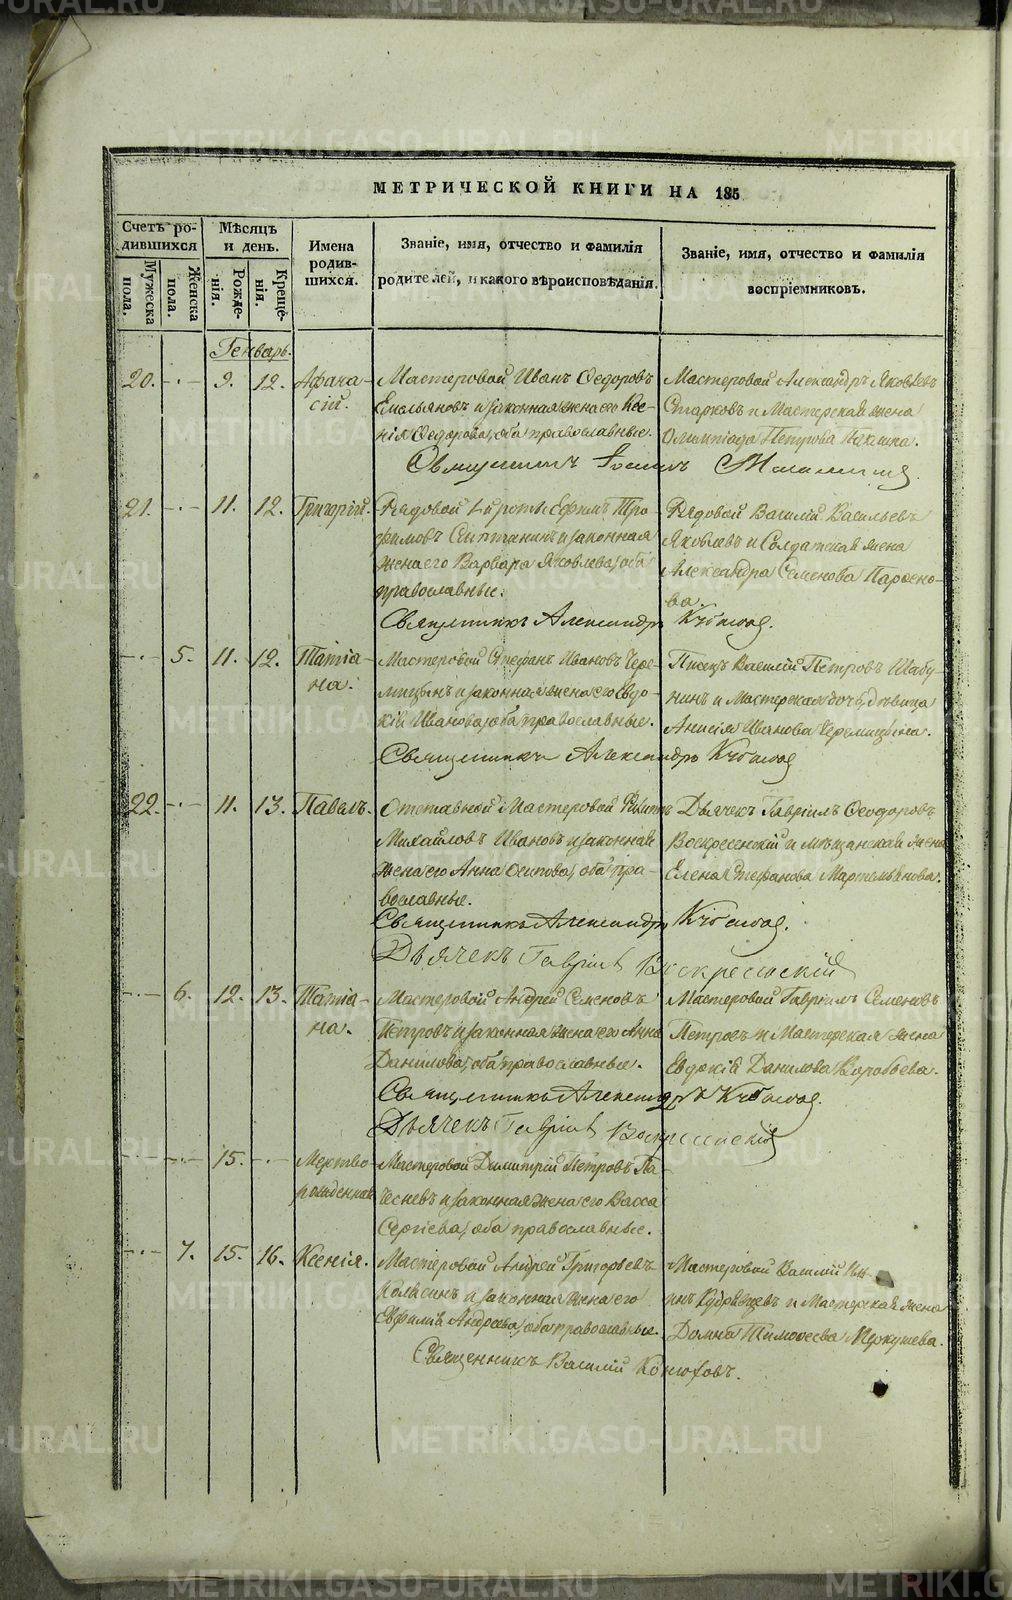 МЕТРИЧЕСКОЙ КНИГИ НА 185
Счетъ ро-
дившихся
Мужеска пола.
Женска пола.
Мѣсяцъ
и день.
Рожде-
нія.
Креще-
нія.
Имена
родив-
шихся.
Званіе, имя, отчество и фамилія
родителей, и какого вѣроисповѣданія.
Званіе, имя, отчество и фамилія
воспріемниковъ.
Генварь.
20. -·- 9. 12. Афана- Мастеровой Иванъ Ѳедоровъ Мастеровой Александръ Яковлевъ
сій. Емельяновъ и законная жена его Ксе- Старковъ и Мастерская жена
нія Ѳедорова, оба православные. Олимпіада Петрова
Священникъ Іоаннъ
21. -·- 11. 12. Григорій. Рядовой роты Ефимъ Тро- Рядовой Василій Васильевъ
фимовъ и законная Яковлевъ и Солдатская жена
жена его Варвара Яковлева, оба Александра Семенова Парѳено-
православные. ва.
Священникъ Александръ
-·- 5. 11. 12. Татіа- Мастеровой Стефанъ Ивановъ Чере- Писецъ Василій Петровъ Шабу-
на. мицынъ и законная жена его Евдо- нинъ и Мастерская дочь девица
кія Иванова, оба православные. Анисія Иванова Черемицына.
Священникъ Александръ
22. -·- 11. 13. Павелъ. Отставной Мастеровой Дьячекъ Гавріилъ Ѳеодоровъ
Михайловъ Ивановъ и законная Воскресенскій и мѣщанская жена
жена его Анна Осипова, оба пра- Елена Стефанова Мартемьянова.
вославные.
Священникъ Александръ
Дьячекъ Гавріилъ Воскресенскій
-·- 6. 12. 13. Татіа- Мастеровой Андрей Семеновъ Мастеровой Гавріилъ Семеновъ
на. Петровъ и законная жена его Анна Петровъ и Мастерская жена
Данилова, оба православные. Евдокія Данилова Воробьева.
Священникъ Александръ
Дьячекъ Гавріилъ Воскресенскій
-·- -·- 15. -·- Мертво- Мастеровой Димитрій Петровъ
рожденная и законная жена его Васса
Сергіева, оба православные.
-·- 7. 15. 16. Ксенія. Мастеровой Андрей Григорьевъ Мастеровой Василій
и законная жена его и Мастерская жена
Андреева, оба православные. Домна Тимоѳеева Меркушева.
Священникъ Василій Конюховъ.
METRIKI.GASO-URAL.RU